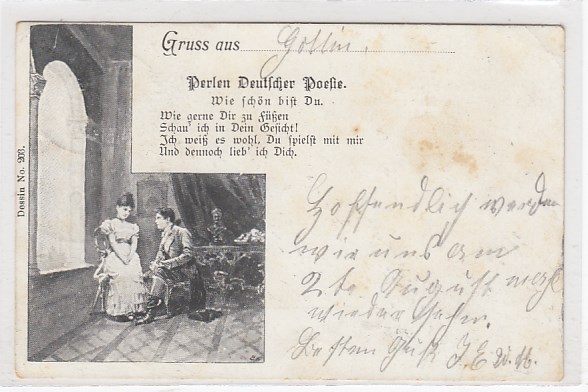 Gruss aus Gollin.
Perlen Deutscher Poesie.
Wie schön bist Du.
Wie gerne Dir zu Füßen
Schau' ich in Dein Gesicht!
Ich weiß es wohl, Du spielst mit mir
Und dennoch lieb' ich Dich.
Dessin No. 203.
Hoffendlich werden
wir uns am
2te August
wieder sehn.
Besten Gruß J. E.